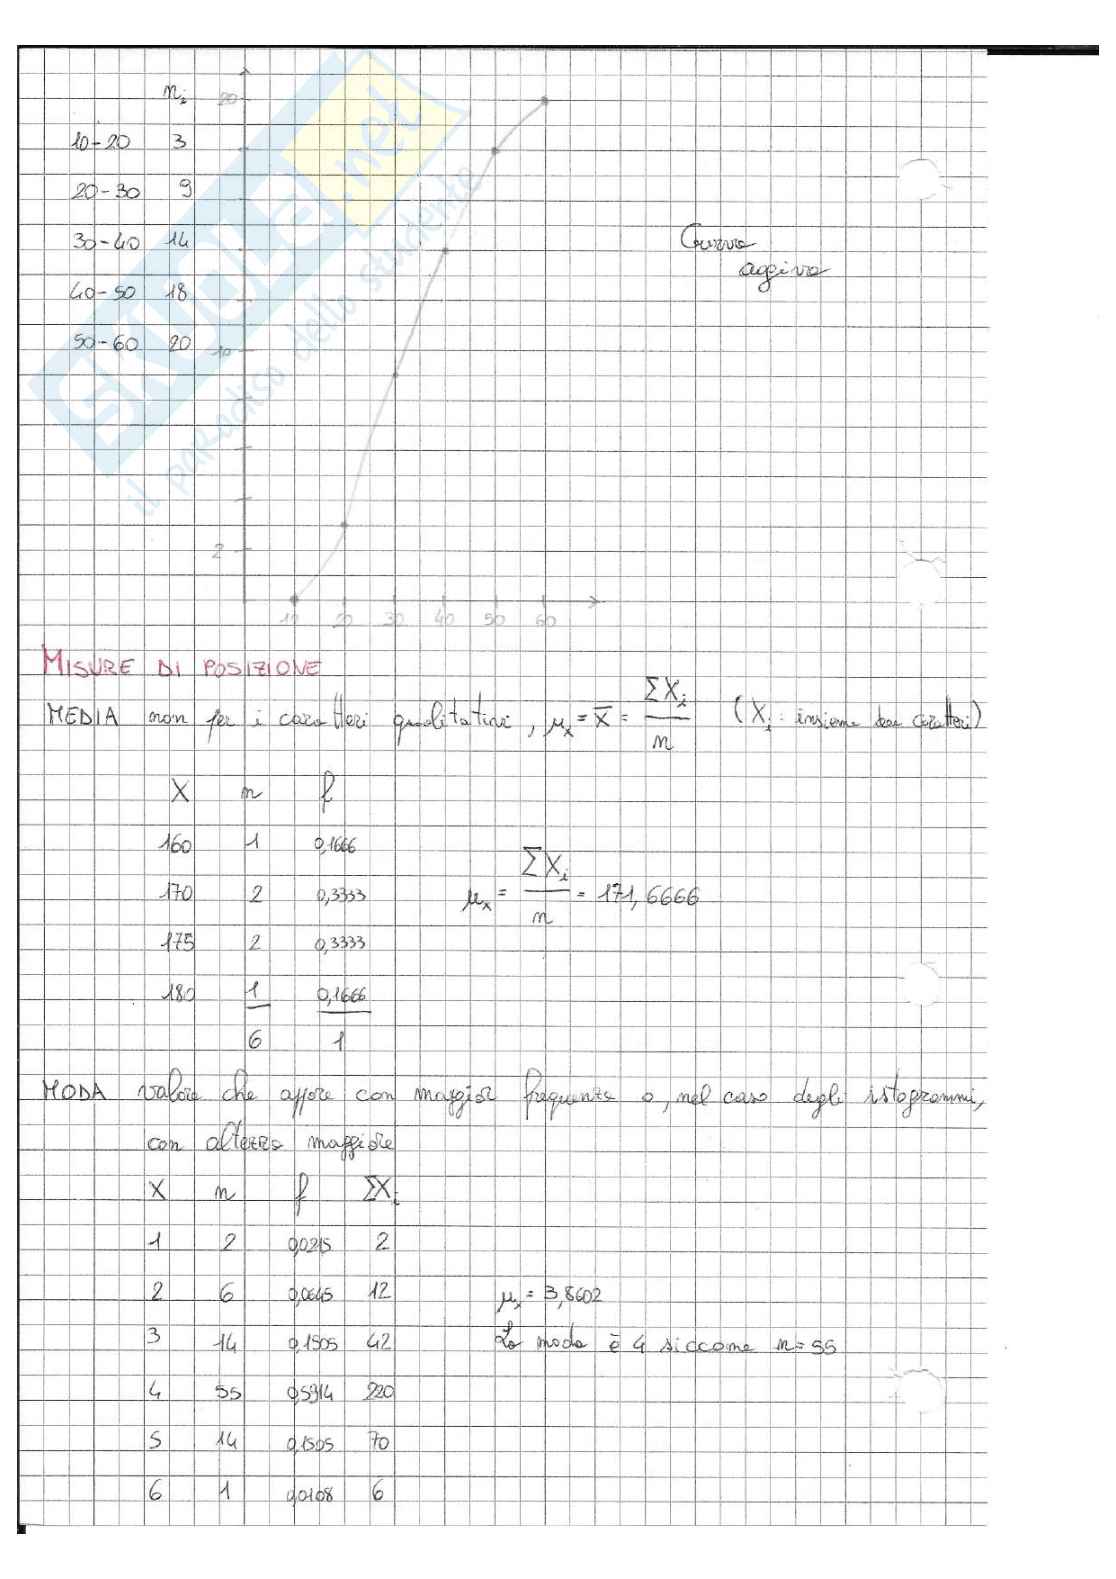 n_i 20
10-20 3
20-30 9
30-40 14
40-50 18
50-60 20 10
2
10 20 30 40 50 60
Curva
ogiva
SKUOLA.net
il paradiso dello studente
MISURE DI POSIZIONE
MEDIA non per i caratteri qualitativi, μ_x = x̄ = ΣX_i / n (X_i: insieme caratteri)
X n f
160 1 0,1666
170 2 0,3333
μ_x = ΣX_i / n = 171,6666
175 2 0,3333
180 1 0,1666
6 1
MODA valore che appare con maggior frequenza o, nel caso degli istogrammi,
con altezza maggiore
X n f ΣX_i
1 2 0,0215 2
2 6 0,0645 12
μ_x = 3,8602
3 14 0,1505 42
La moda è 4 siccome n=55
4 55 0,5914 220
5 14 0,1505 70
6 1 0,0108 6